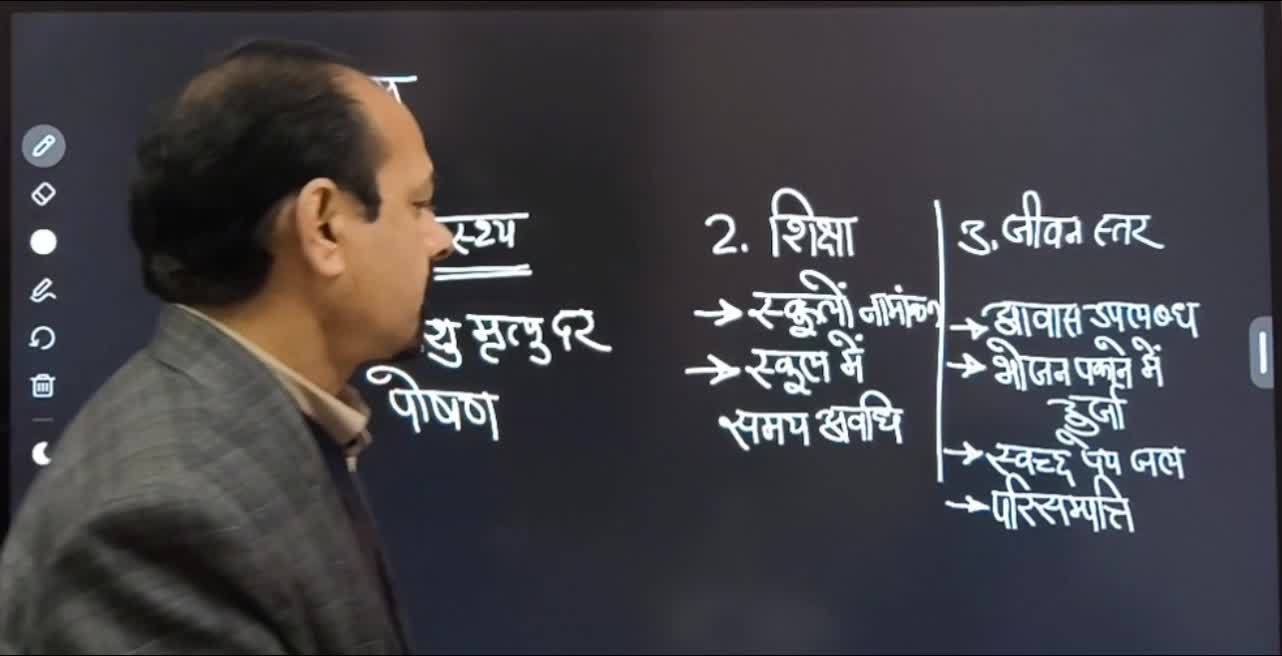 2. शिक्षा
→ स्कूलों नामांकन
→ स्कूल में
समय अवधि
3. जीवन स्तर
→ आवास उपलब्ध
→ भोजन पकाने में
→ स्वच्छ पेय जल
→ परिसम्पत्ति
मृत्यु दर
पोषण